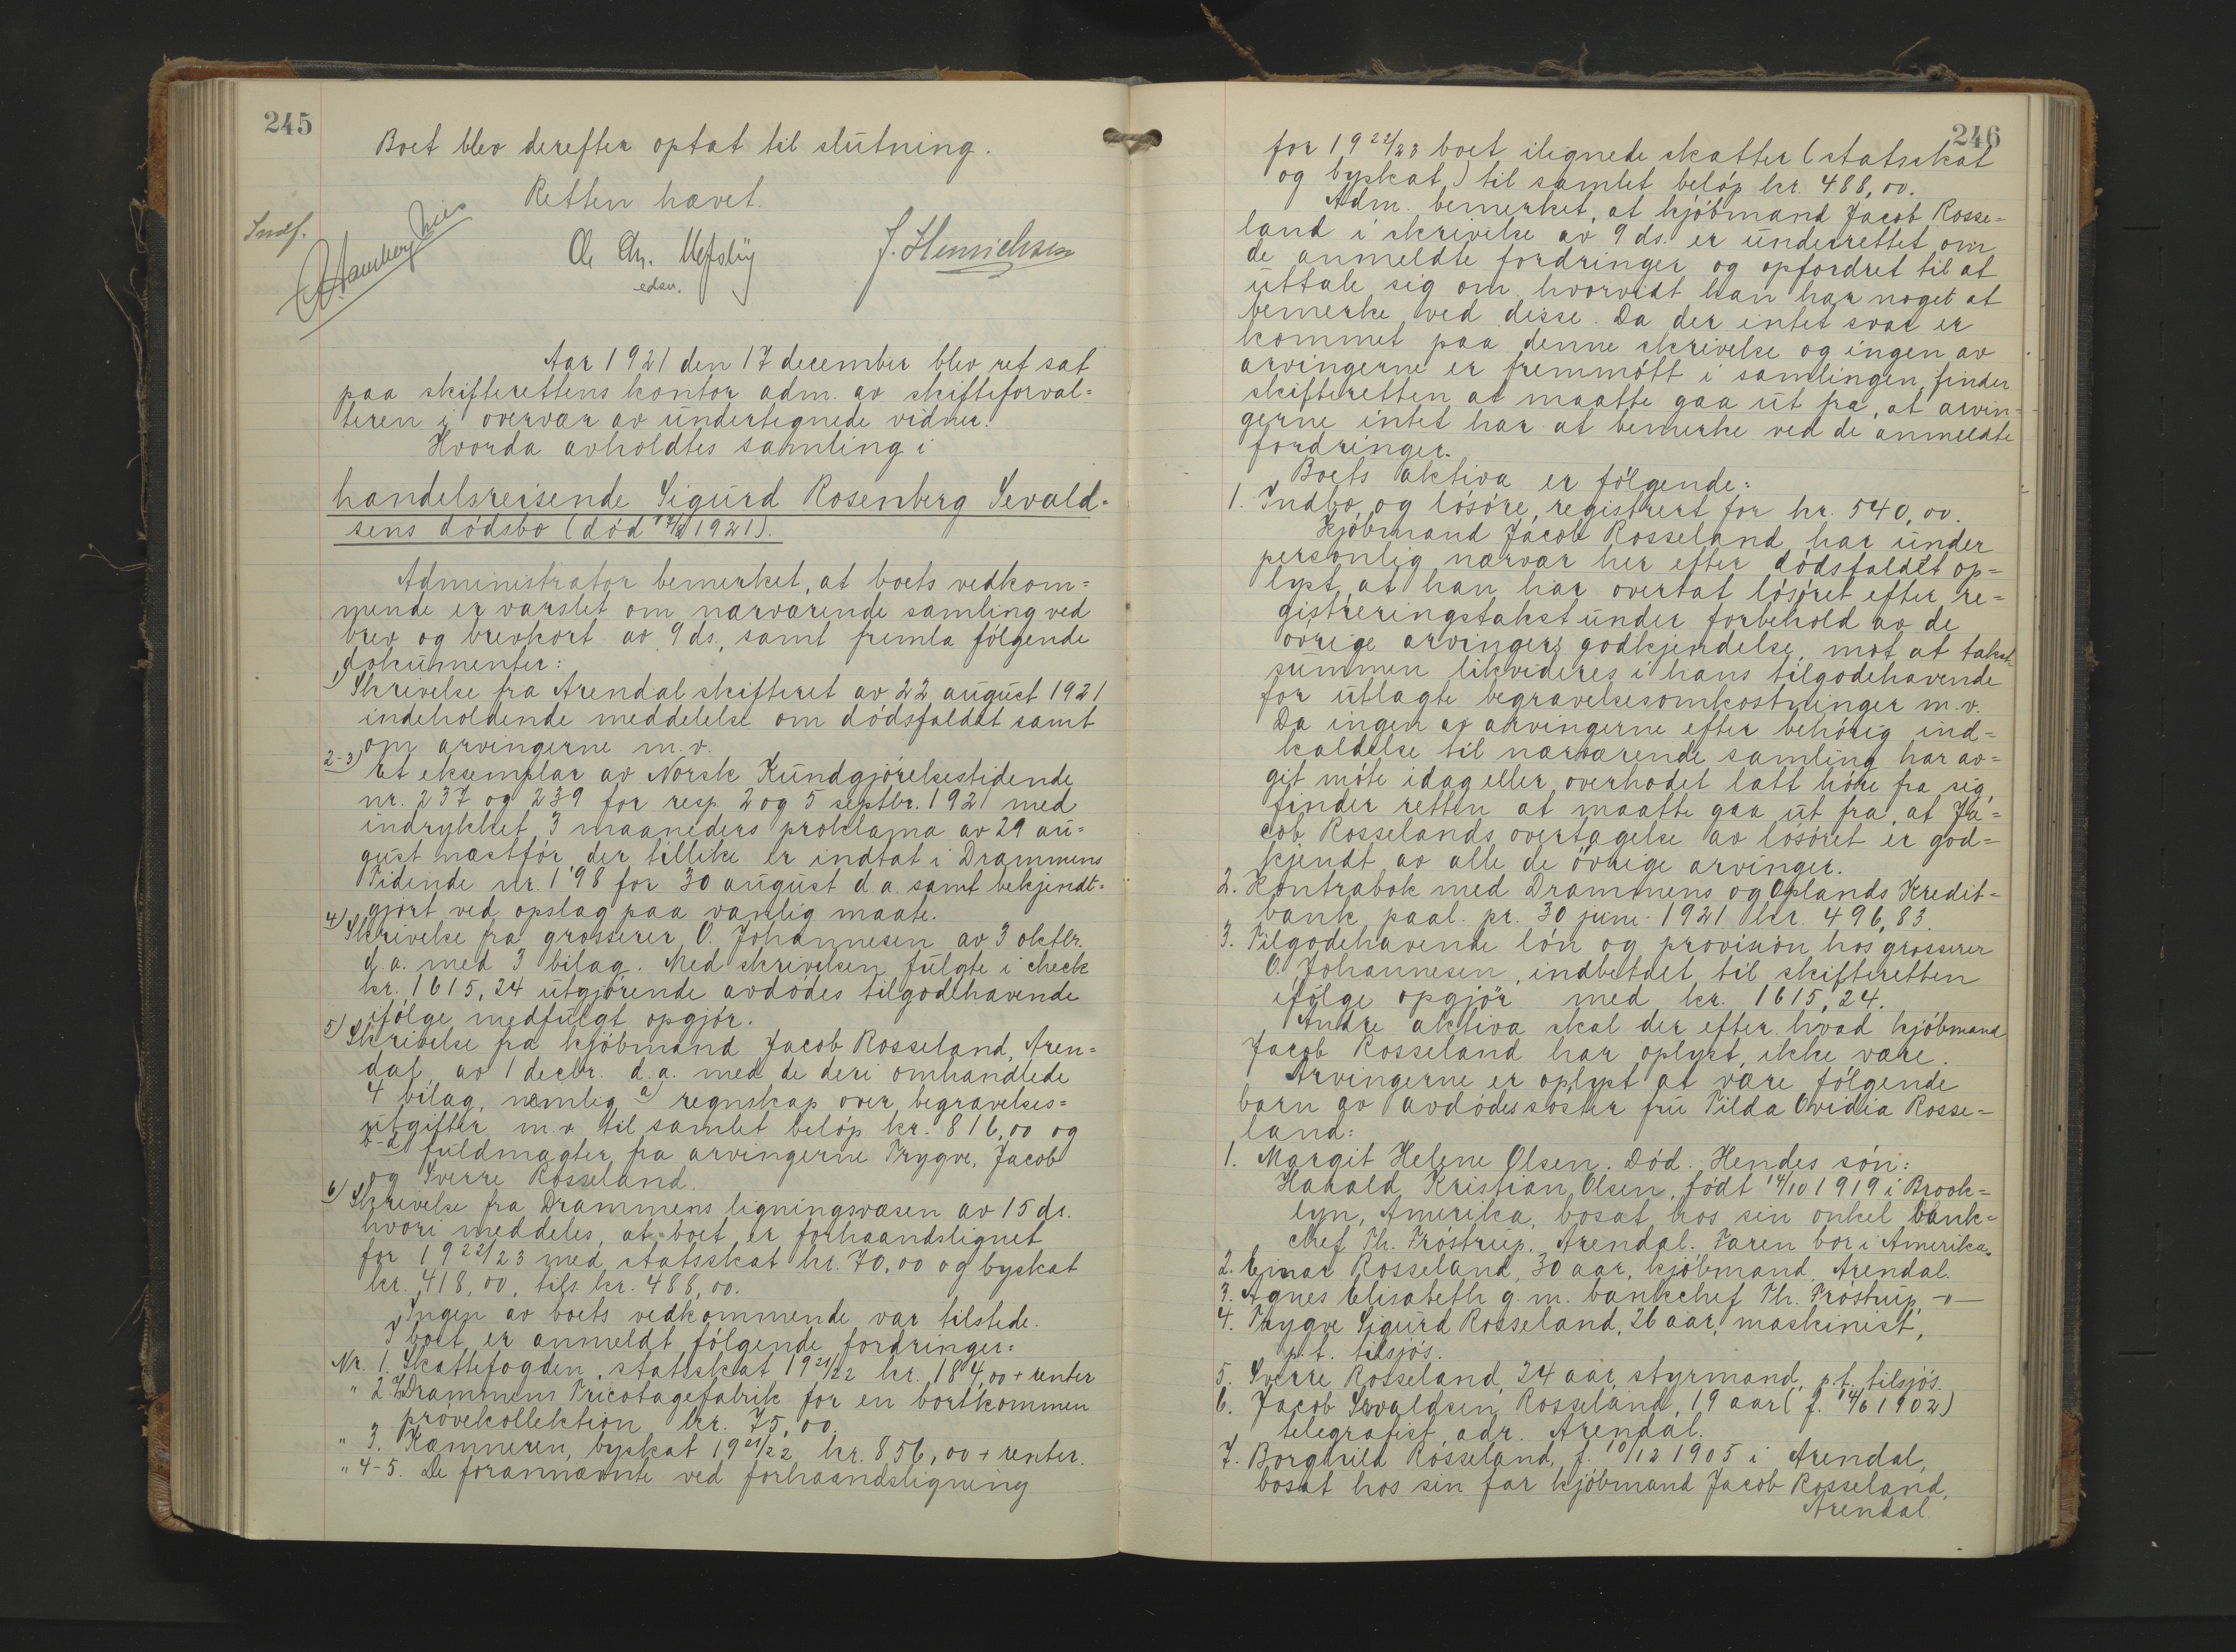 245
Boet blev derefter optat til slutning.
Retten hævet.
J. Henrichsen
Aar 1921 den 17 december blev ret sat
paa skifterettens kontor adm. av skifteforval=
teren i overvær av undertegnede vidner.
Hvorda avholdtes samling i
handelsreisende Sigurd Rosenberg Sevald=
sens dödsbo (död 1921).
Administrator bemerket, at boets vedkom=
mende er varslet om nærværende samling ved
brev og brevkort av 9 ds., samt fremla fölgende
dokumenter:
1) Skrivelse fra Arendal skifteret av 22 august 1921
indeholdende meddelelse om dödsfaldet samt
om arvingerne m.v.
2-3) Et eksemplar av Norsk Kundgjörelsestidende
nr. 237 og 239 for resp. 2 og 5 septbr. 1921 med
indrykket 3 maaneders proklama av 29 au=
gust næstför, der tillike er indtat i Drammens
Tidende nr. 198 for 30 august d.a. samt bekjendt=
gjort ved opslag paa vanlig maate.
4) Skrivelse fra grosserer O. Johannesen av 3 oktbr.
d.a. med 3 bilag. Med skrivelsen fulgte i check
kr. 1615,24 utgjörende avdödes tilgodehavende
ifölge medfulgt opgjör.
5) Skrivelse fra kjöbmand Jacob Rosseland, Aren=
dal, av 1 decbr. d.a. med de deri omhandlede
4 bilag, nemlig a) regnskap over begravelses=
utgifter m.v. til samlet belöp kr. 816,00 og
b-d fuldmagter fra arvingerne Trygve, Jacob
og Sverre Rosseland.
6) Skrivelse fra Drammens ligningsvæsen av 15 ds.
hvori meddeles, at boet er forhaandslignet
for 1922/23 med statsskat kr. 70,00 og byskat
kr. 418,00, tils. kr. 488,00.
Ingen av boets vedkommende var tilstede.
I boet er anmeldt fölgende fordringer:
Nr. 1. Skattefogden, statsskat 1921/22 kr. 184,00 + renter
" 2 Drammens Tricotagefabrik for en bortkommen
prövekollektion kr. 75,00.
" 3. Kæmneren, byskat 1921/22 kr. 856,00 + renter.
" 4-5. De forannævnte ved forhaandsligning
246
for 1922/23 boet ilignede skatter (statsskat
og byskat,) til samlet belöp kr. 488,00.
Adm. bemerket, at kjöbmand Jacob Rosse=
land i skrivelse av 9 ds. er underrettet om
de anmeldte fordringer og opfordret til at
uttale sig om hvorvidt han har noget at
bemerke ved disse. Da der intet svar er
kommet paa denne skrivelse og ingen av
arvingerne er fremmött i samlingen, finder
skifteretten at maatte gaa ut fra, at arvin=
gerne intet har at bemerke ved de anmeldte
fordringer.
Boets aktiva er fölgende:
1. Indbo og lösöre, registrert for kr. 540,00.
Kjöbmand Jacob Rosseland har under
personlig nærvær her efter dödsfaldet op=
lyst, at han har overtat lösöret efter re=
gistreringstakst under forbehold av de
övrige arvingers godkjendelse, mot at takst=
summen likvideres i hans tilgodehavende
for utlagte begravelsesomkostninger m.v.
Da ingen av arvingerne efter behörig ind=
kaldelse til nærværende samling har av=
git möte idag eller overhodet latt höre fra sig,
finder retten at maatte gaa ut fra, at Ja=
cob Rosselands overtagelse av lösöret er god=
kjendt av alle de övrige arvinger.
2. Kontrabok med Drammens og Oplands Kredit=
bank, paal. pr. 30 juni 1921 kr. 496,83.
3. Tilgodehavende lön og provision hos grosserer
O. Johannesen, indbetalt til skifteretten
ifölge opgjör med kr. 1615,24.
Andre aktiva skal der efter hvad kjöbmand
Jacob Rosseland har oplyst, ikke være.
Arvingerne er oplyst at være fölgende
barn av avdödes söster fru Tilda Ovidia Rosse=
land:
1. Margit Helene Olsen. Död. Hendes sön:
Harald Kristian Olsen, född 14/10 1919 i Brook=
lyn, Amerika, bosat hos sin onkel bank=
chef Th. Tröstrup, Arendal. Faren bor i Amerika.
2. Einar Rosseland, 30 aar, kjöbmand, Arendal.
3. Agnes Elisabeth g.m. bankchef Th. Tröstrup, -"-
4. Trygve Sigurd Rosseland, 26 aar, maskinist,
p.t. tilsjös.
5. Sverre Rosseland, 24 aar, styrmand, p.t. tilsjös.
6. Jacob Sevaldsen Rosseland, 19 aar (f. 14/6 1902)
telegrafist, adr. Arendal.
7. Borghild Rosseland, f. 10/12 1905 i Arendal,
bosat hos sin far kjöbmand Jacob Rosseland,
Arendal.